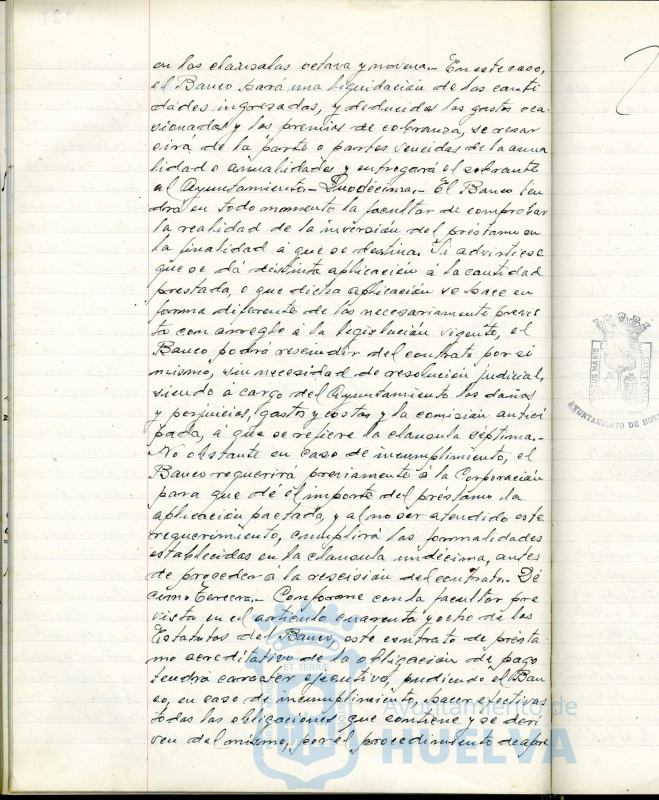 en las clausulas octava y novena.- En este caso,
el Banco hará una liquidación de las canti
dades ingresadas, y deducidos los gastos oca-
sionados y los premios de cobranza, se resar
cirá de la parte o partes vencidas de la anua
lidad o anualidades y entregará el sobrante
al Ayuntamiento.- Duodécima.- El Banco ten
drá en todo momento la facultad de comprobar
la realidad de la inversión del préstamo en
la finalidad á que se destina. Si advirtiese
que se dá distinta aplicación á la cantidad
prestada, o que dicha aplicación se hace en
forma diferente de las necesariamente previs
to con arreglo á la legislación vigente, el
Banco, podrá rescindir del contrato por sí
mismo, sin necesidad de resolución judicial,
siendo á cargo del Ayuntamiento los daños
y perjuicios, gastos y costas y la comisión antici
pada, á que se refiere la clausula séptima.-
No obstante en caso de incumplimiento, el
Banco requerirá previamente á la Corporación
para que dé el importe del préstamo la
aplicación pactada, y al no ser atendido este
requerimiento, cumplirá las formalidades
establecidas en la clausula undécima, antes
de proceder á la rescisión del contrato.- Dé
cimo Tercera.- Conforme con la facultad pre
vista en el artículo cuarenta y ocho de los
Estatutos del Banco, este contrato de présta
mo acreditativo de la obligación de pago
tendrá carácter ejecutivo, pudiendo el Ban
co, en caso de incumplimiento, hacer efectivas
todas las obligaciones que contiene y se deri
ven del mismo, por el procedimiento de apre
Ayuntamiento de
HUELVA
ET TERRÆ
AYUNTAMIENTO DE HUE